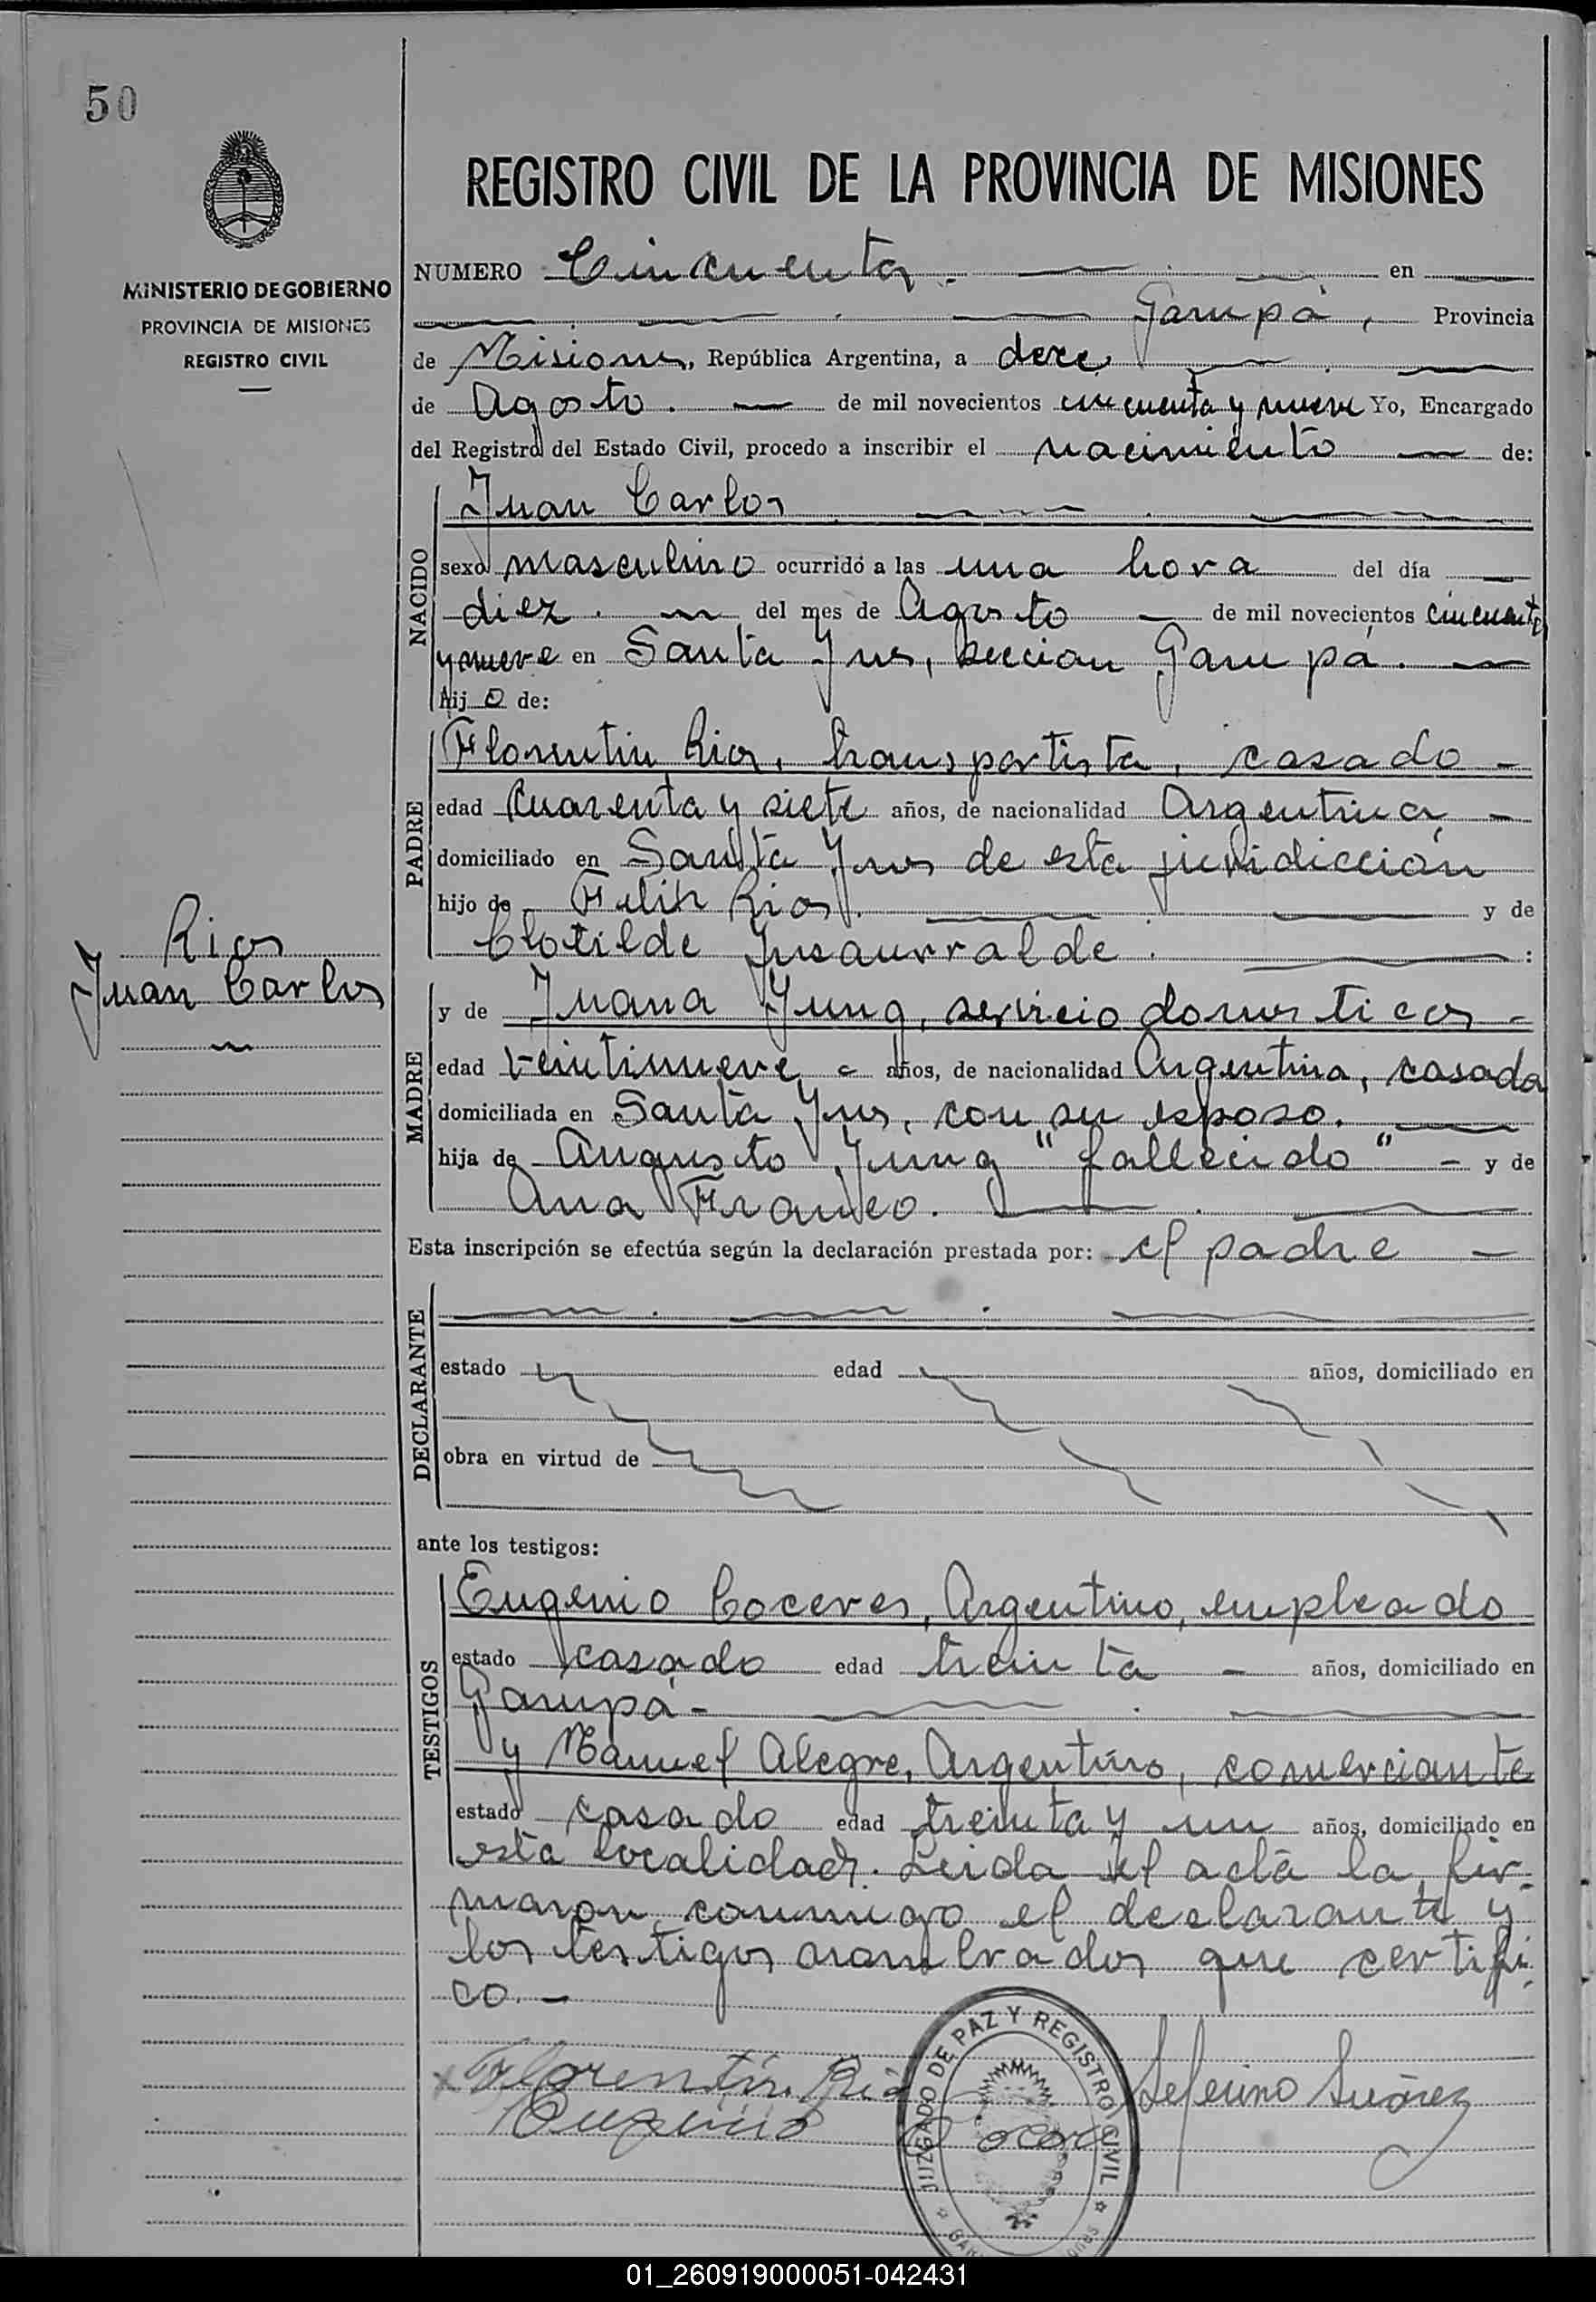 50
REGISTRO CIVIL DE LA PROVINCIA DE MISIONES
MINISTERIO DE GOBIERNO
PROVINCIA DE MISIONES
REGISTRO CIVIL
NUMERO Cincuenta. en
Garupá, Provincia
de Misiones, República Argentina, a doce
de Agosto. de mil novecientos cincuenta y nueve Yo, Encargado
del Registro del Estado Civil, procedo a inscribir el nacimiento de:
NACIDO
Juan Carlos
sexo masculino ocurrido a las una hora del día
diez. del mes de Agosto de mil novecientos cincuenta
y nueve en Santa Ines, seccion Garupá.
hijo de:
PADRE
Florentin Rios, transportista, casado -
edad Cuarenta y siete años, de nacionalidad Argentina -
domiciliado en Santa Ines de esta juridicción
hijo de Felix Rios. y de
Clotilde Insaurralde. :
Rios
Juan Carlos
MADRE
y de Juana Jung, servicio domesticos -
edad veintinueve años, de nacionalidad Argentina, casada
domiciliada en Santa Ines, con su esposo.
hija de Augusto Jung "fallecido" - y de
Ana Franco.
Esta inscripción se efectúa según la declaración prestada por: el padre -
DECLARANTE
estado edad años, domiciliado en
obra en virtud de
ante los testigos:
TESTIGOS
Eugenio Coceres, Argentino, empleado
estado casado edad treinta - años, domiciliado en
Garupá -
y Manuel Alegre, Argentino, comerciante
estado casado edad treinta y un años, domiciliado en
esta localidad. Leida el acta la fir-
maron conmigo el declarante y
los testigos nombrados que certifi-
co. -
Florentin Rio
Eugenio Cocere
Seferino Suárez
JUZGADO DE PAZ Y REGISTRO CIVIL
01_260919000051-042431